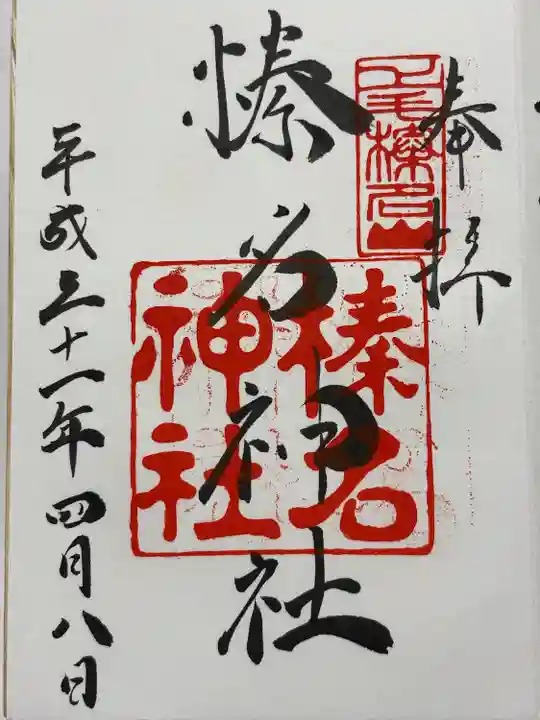 奉拝
上毛榛名山
榛名神社
榛名神社
平成三十一年四月八日